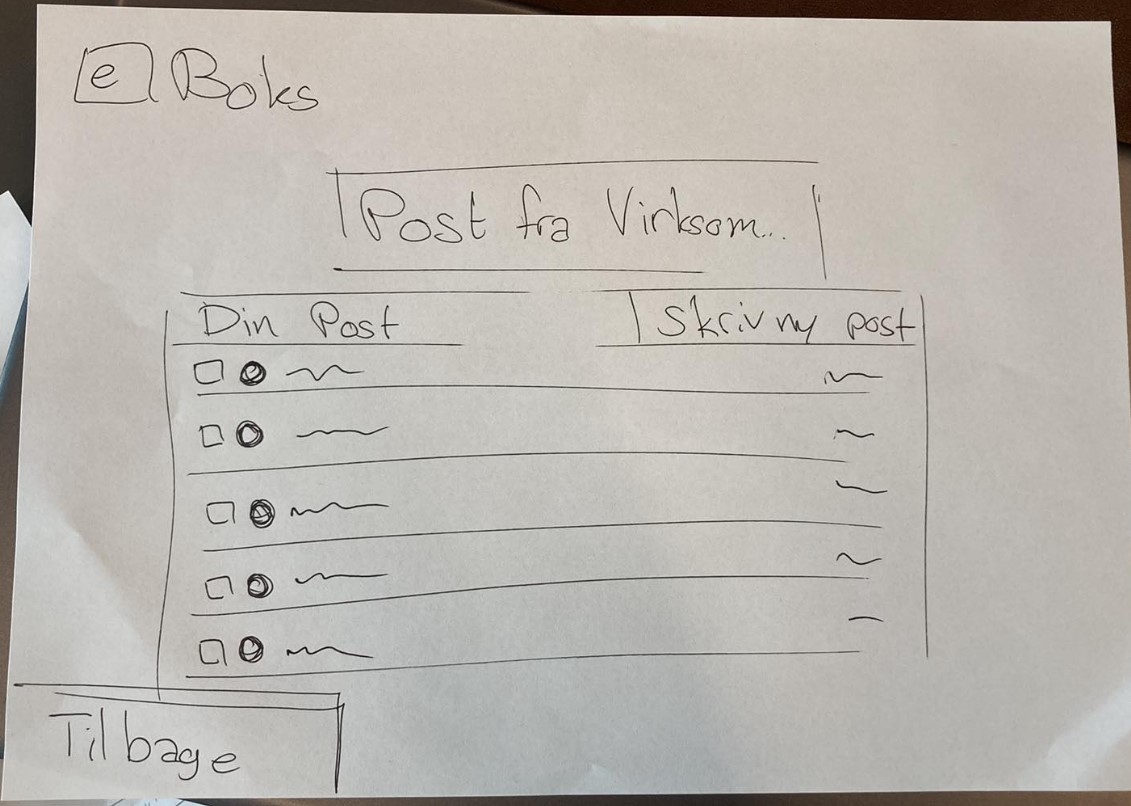 e Boks
Post fra Virksom...
Din Post
Skriv ny post
Tilbage